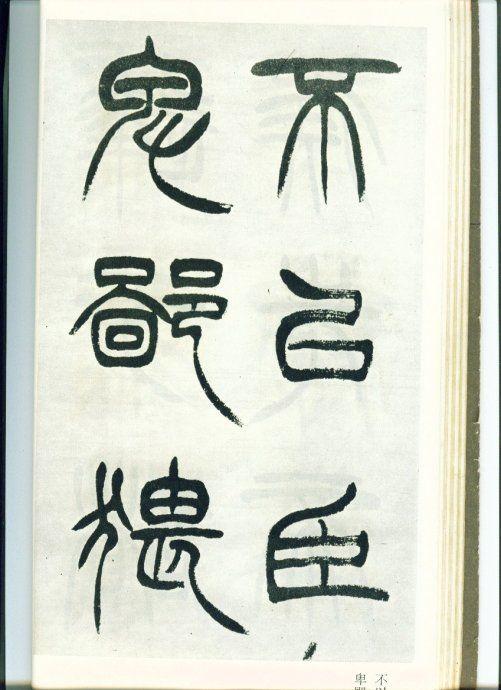 不以臣
卑鄙猥
不以
卑鄙